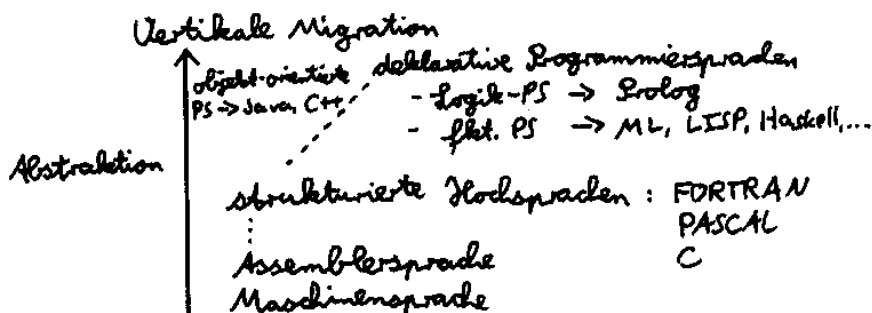 Vertikale Migration
objekt-orientierte deklarative Programmiersprachen
PS → Java, C++ - Logik-PS → Prolog
- fkt. PS → ML, LISP, Haskell,...
Abstraktion
strukturierte Hochsprachen : FORTRAN
PASCAL
Assemblersprache C
Maschinensprache